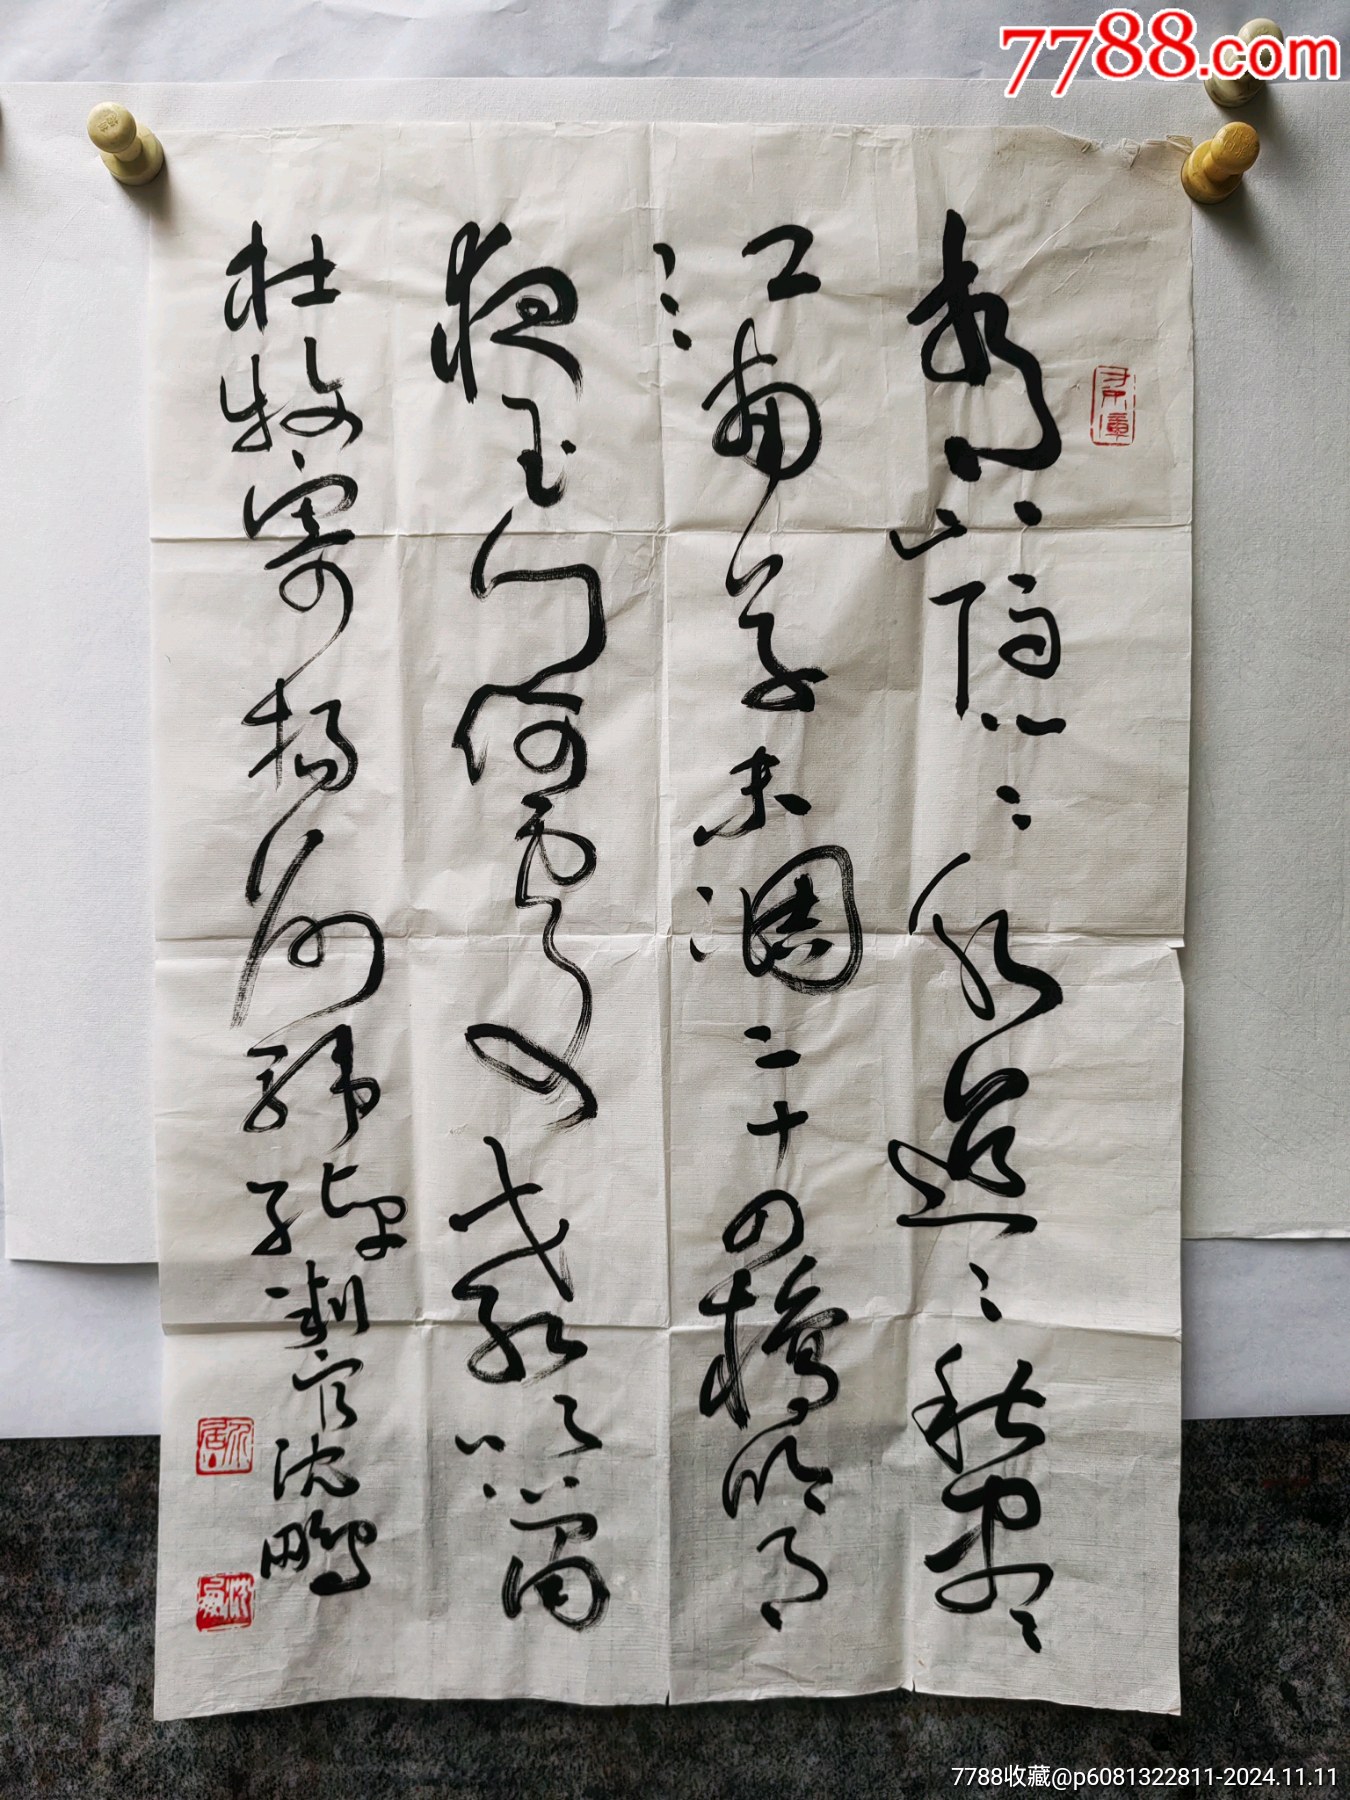 7788.com
青山隱〻水迢〻秋盡
江南草未凋二十四橋明月
夜玉人何處教吹簫
杜牧寄揚州韓綽判官沈鵬
7788收藏@p6081322811-2024.11.11